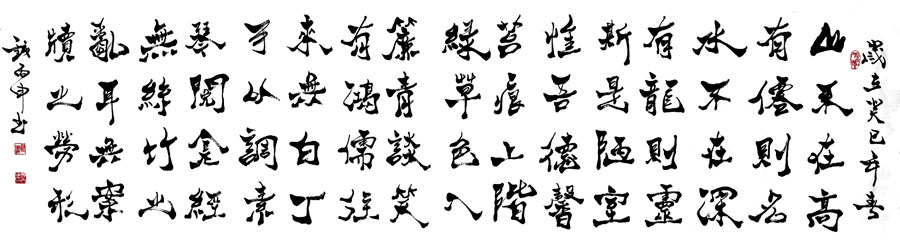 歲在癸巳年春
山不在高
有僊則名
水不在深
有龍則靈
斯是陋室
惟吾德馨
苔痕上階
綠草色入
簾青談笑
有鴻儒往
來無白丁
可以調素
琴閱金經
無絲竹之
亂耳無案
牘之勞形